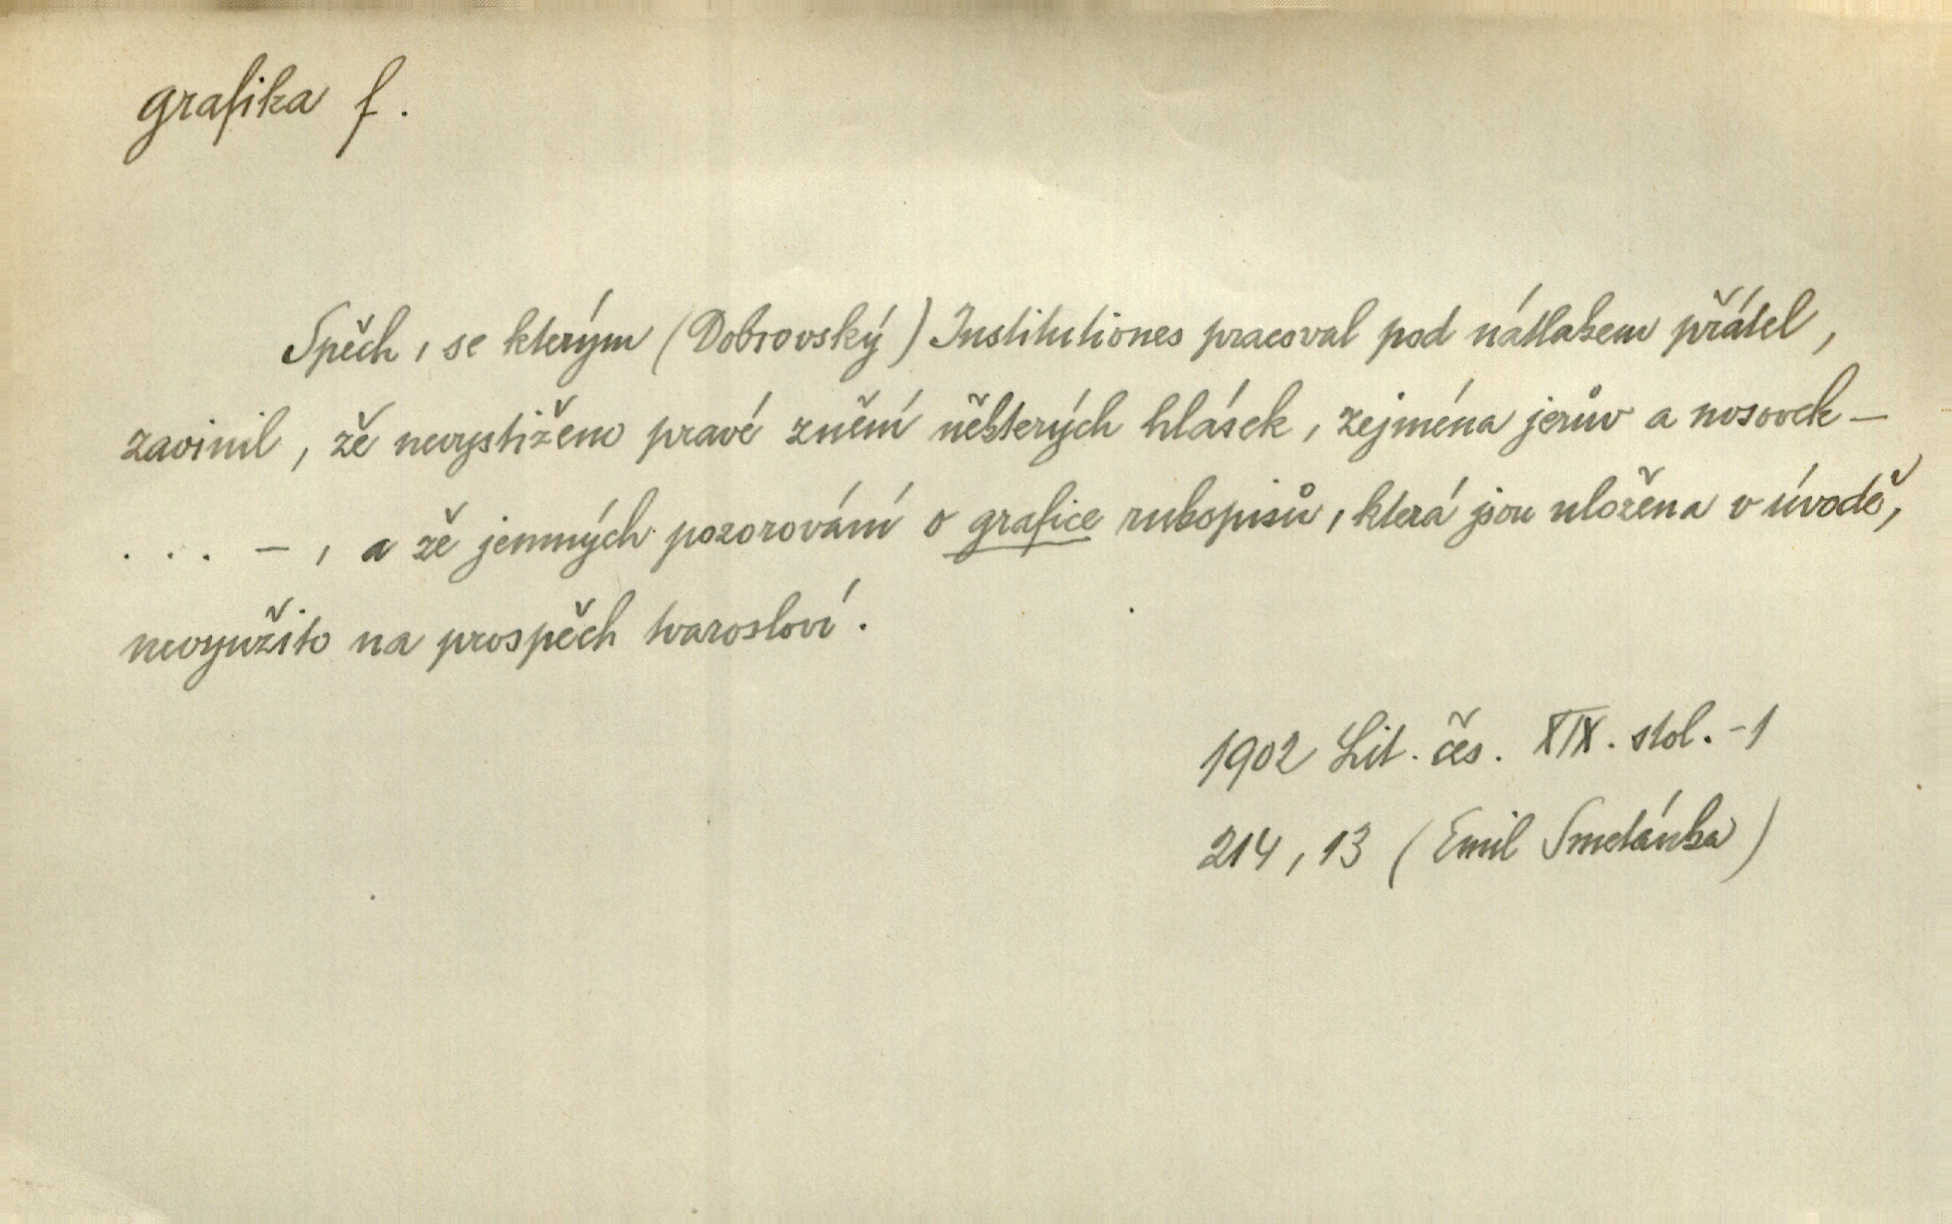 grafika f.
Spěch, se kterým (Dobrovský) Institutiones pracoval pod nátlakem přátel,
zavinil, že nevystiženo pravé znění některých hlásek, zejména jerův a nosovek –
. . . – , a že jemných pozorování o grafice rukopisů, která jsou uložena v úvodě,
nevyužito na prospěch tvarosloví.
1902 Lit. čes. XIX. stol. -1
214, 13 (Emil Smetánka)